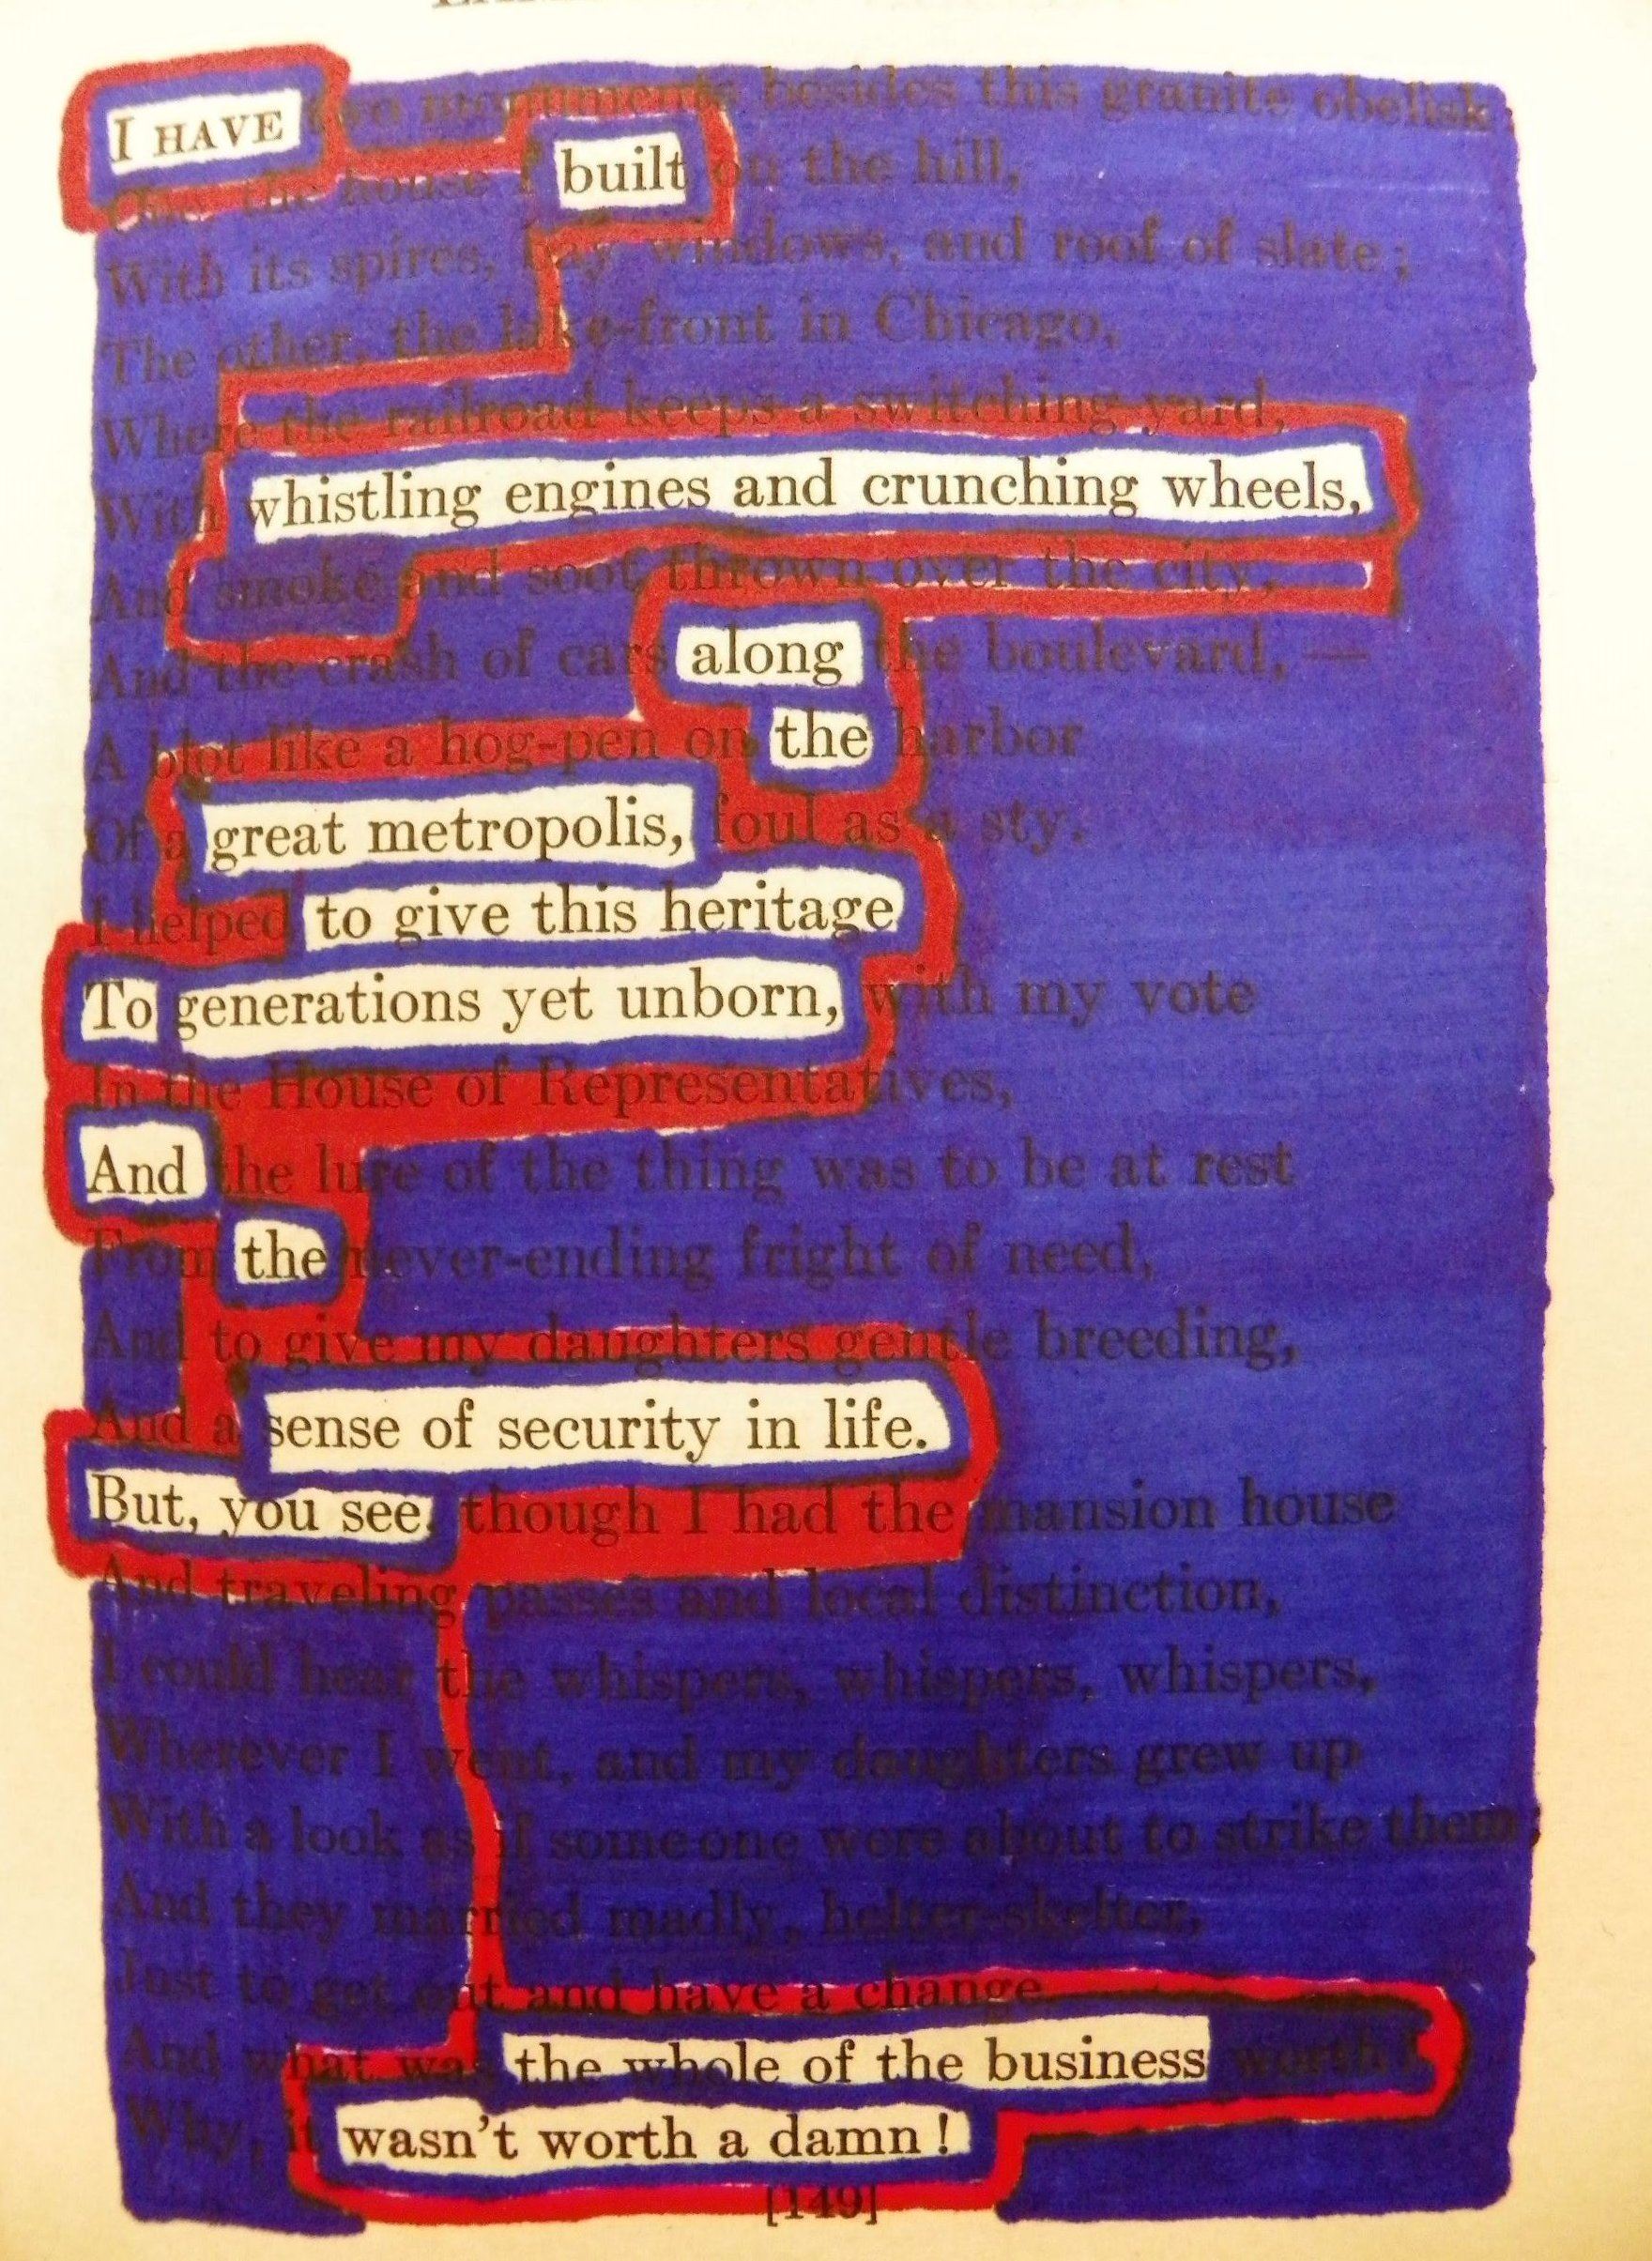 I HAVE two monuments besides this granite obelisk:
One, the house I built on the hill,
With its spires, bay windows, and roof of slate;
The other, the lake-front in Chicago,
Where the railroad keeps a switching yard,
With whistling engines and crunching wheels,
And smoke and soot thrown over the city,
And the crash of cars along the boulevard,—
A blot like a hog-pen on the harbor
Of a great metropolis, foul as a sty.
I helped to give this heritage
To generations yet unborn, with my vote
In the House of Representatives,
And the lure of the thing was to be at rest
From the never-ending fright of need,
And to give my daughters gentle breeding,
And a sense of security in life.
But, you see, though I had the mansion house
And traveling passes and local distinction,
I could hear the whispers, whispers, whispers,
Wherever I went, and my daughters grew up
With a look as if someone were about to strike them;
And they married madly, helter-skelter,
Just to get out and have a change.
And what was the whole of the business worth!
Why, it wasn't worth a damn!
[149]